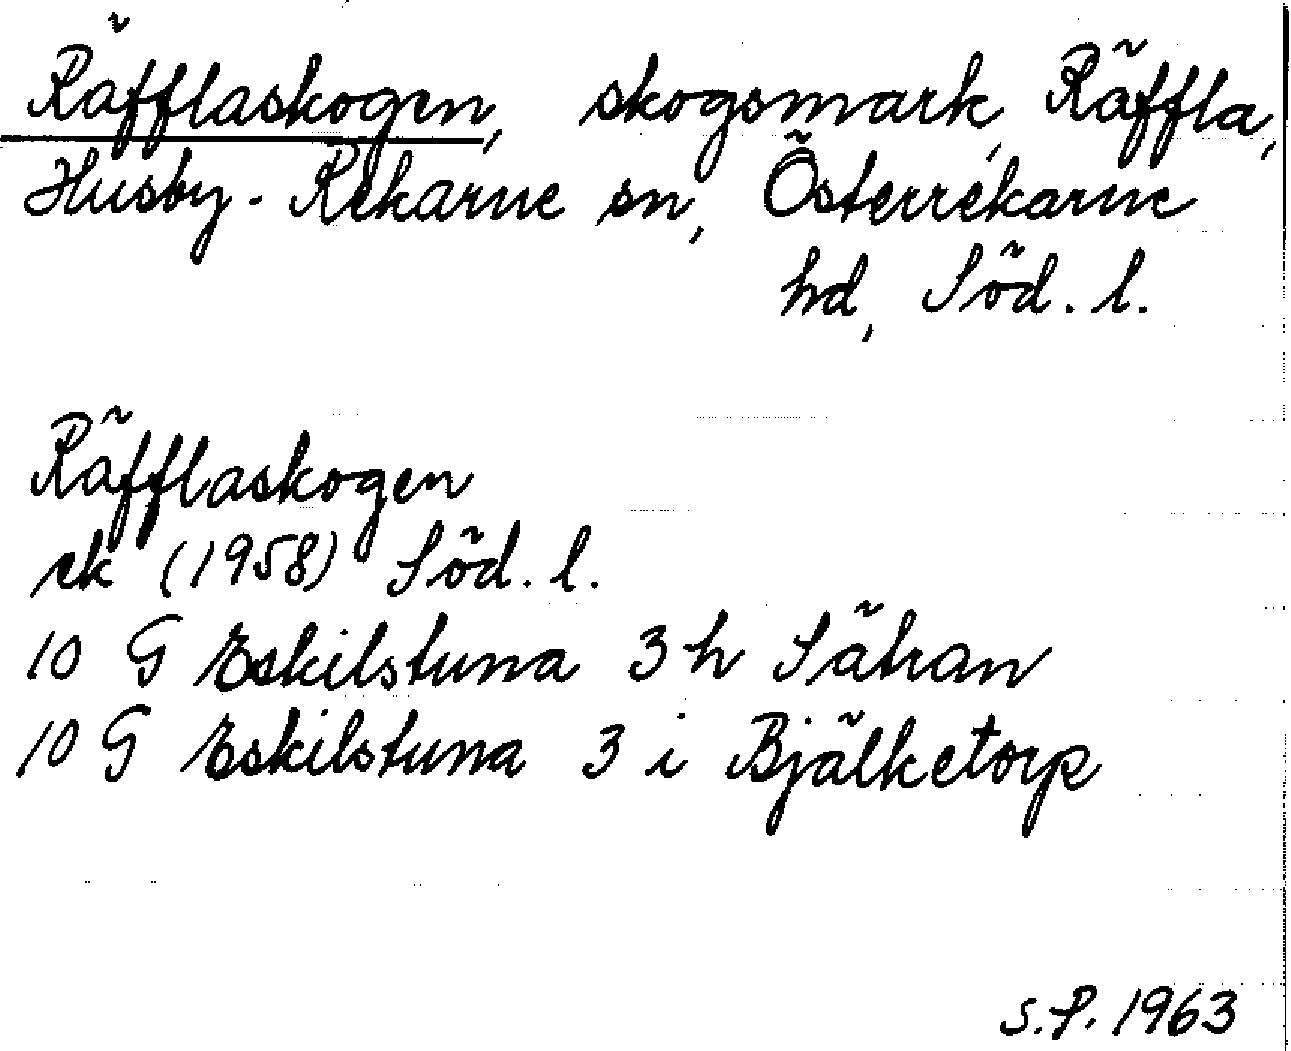 Räfflaskogen, skogsmark, Räffla,
Husby-Rekarne sn, Österrekarne
hd, Söd. l.
Räfflaskogen
ek (1958) Söd. l.
10 G Eskilstuna 3 h Sätran
10 G Eskilstuna 3 i Bjälketorp
S.P. 1963